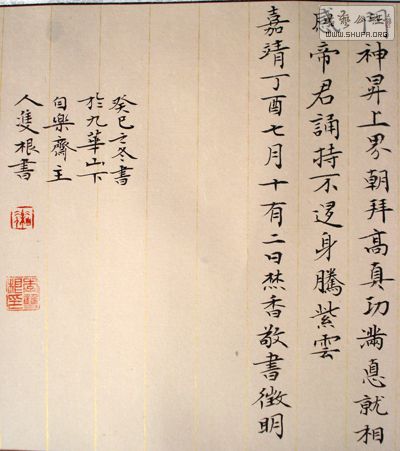 門神昇上界朝拜高真功滿悳就相
感帝君誦持不退身騰紫雲
嘉靖丁酉七月十有二日焚香敬書徵明
癸巳之冬書
於九華山下
自樂齋主
人隻根書
WWW.SHUFA.ORG